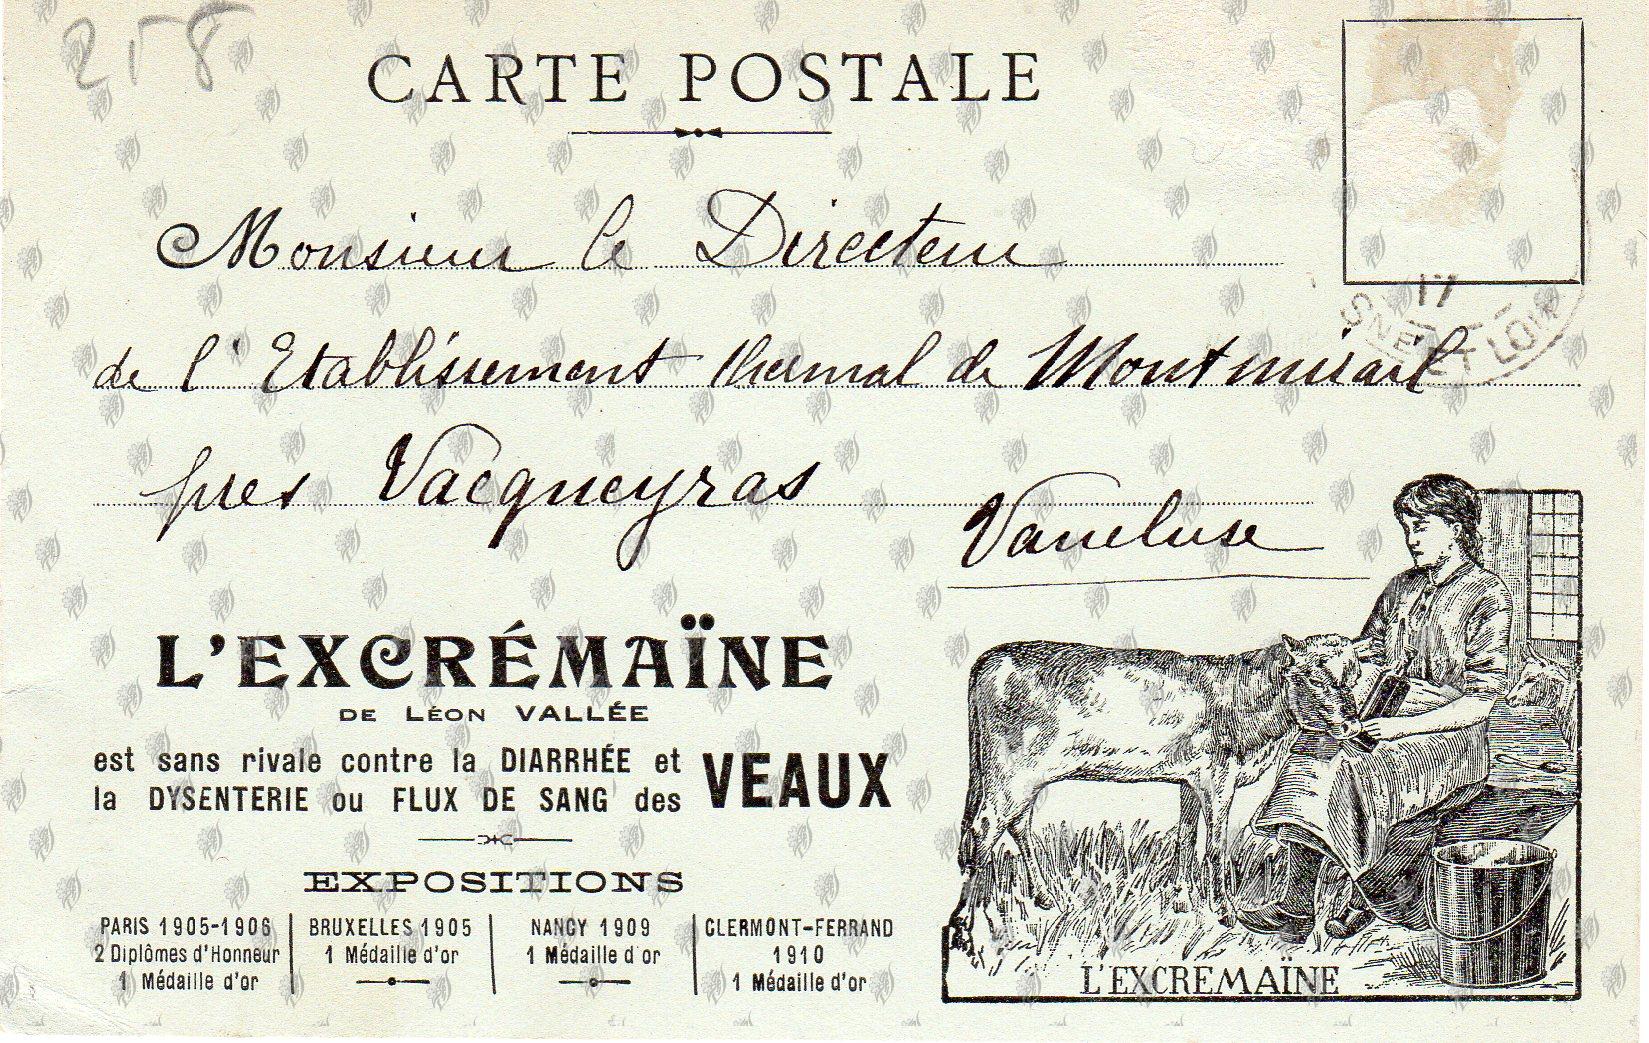 258
CARTE POSTALE
Monsieur le Directeur
17
SNE ET LOIR
de l'Etablissement thermal de Montmirail
près Vacqueyras
Vaucluse
L'EXCRÉMAÏNE
DE LÉON VALLÉE
est sans rivale contre la DIARRHÉE et
la DYSENTERIE ou FLUX DE SANG des
VEAUX
EXPOSITIONS
PARIS 1905-1906
2 Diplômes d'Honneur
1 Médaille d'or
BRUXELLES 1905
1 Médaille d'or
NANCY 1909
1 Médaille d'or
CLERMONT-FERRAND
1910
1 Médaille d'or
L'EXCREMAÏNE